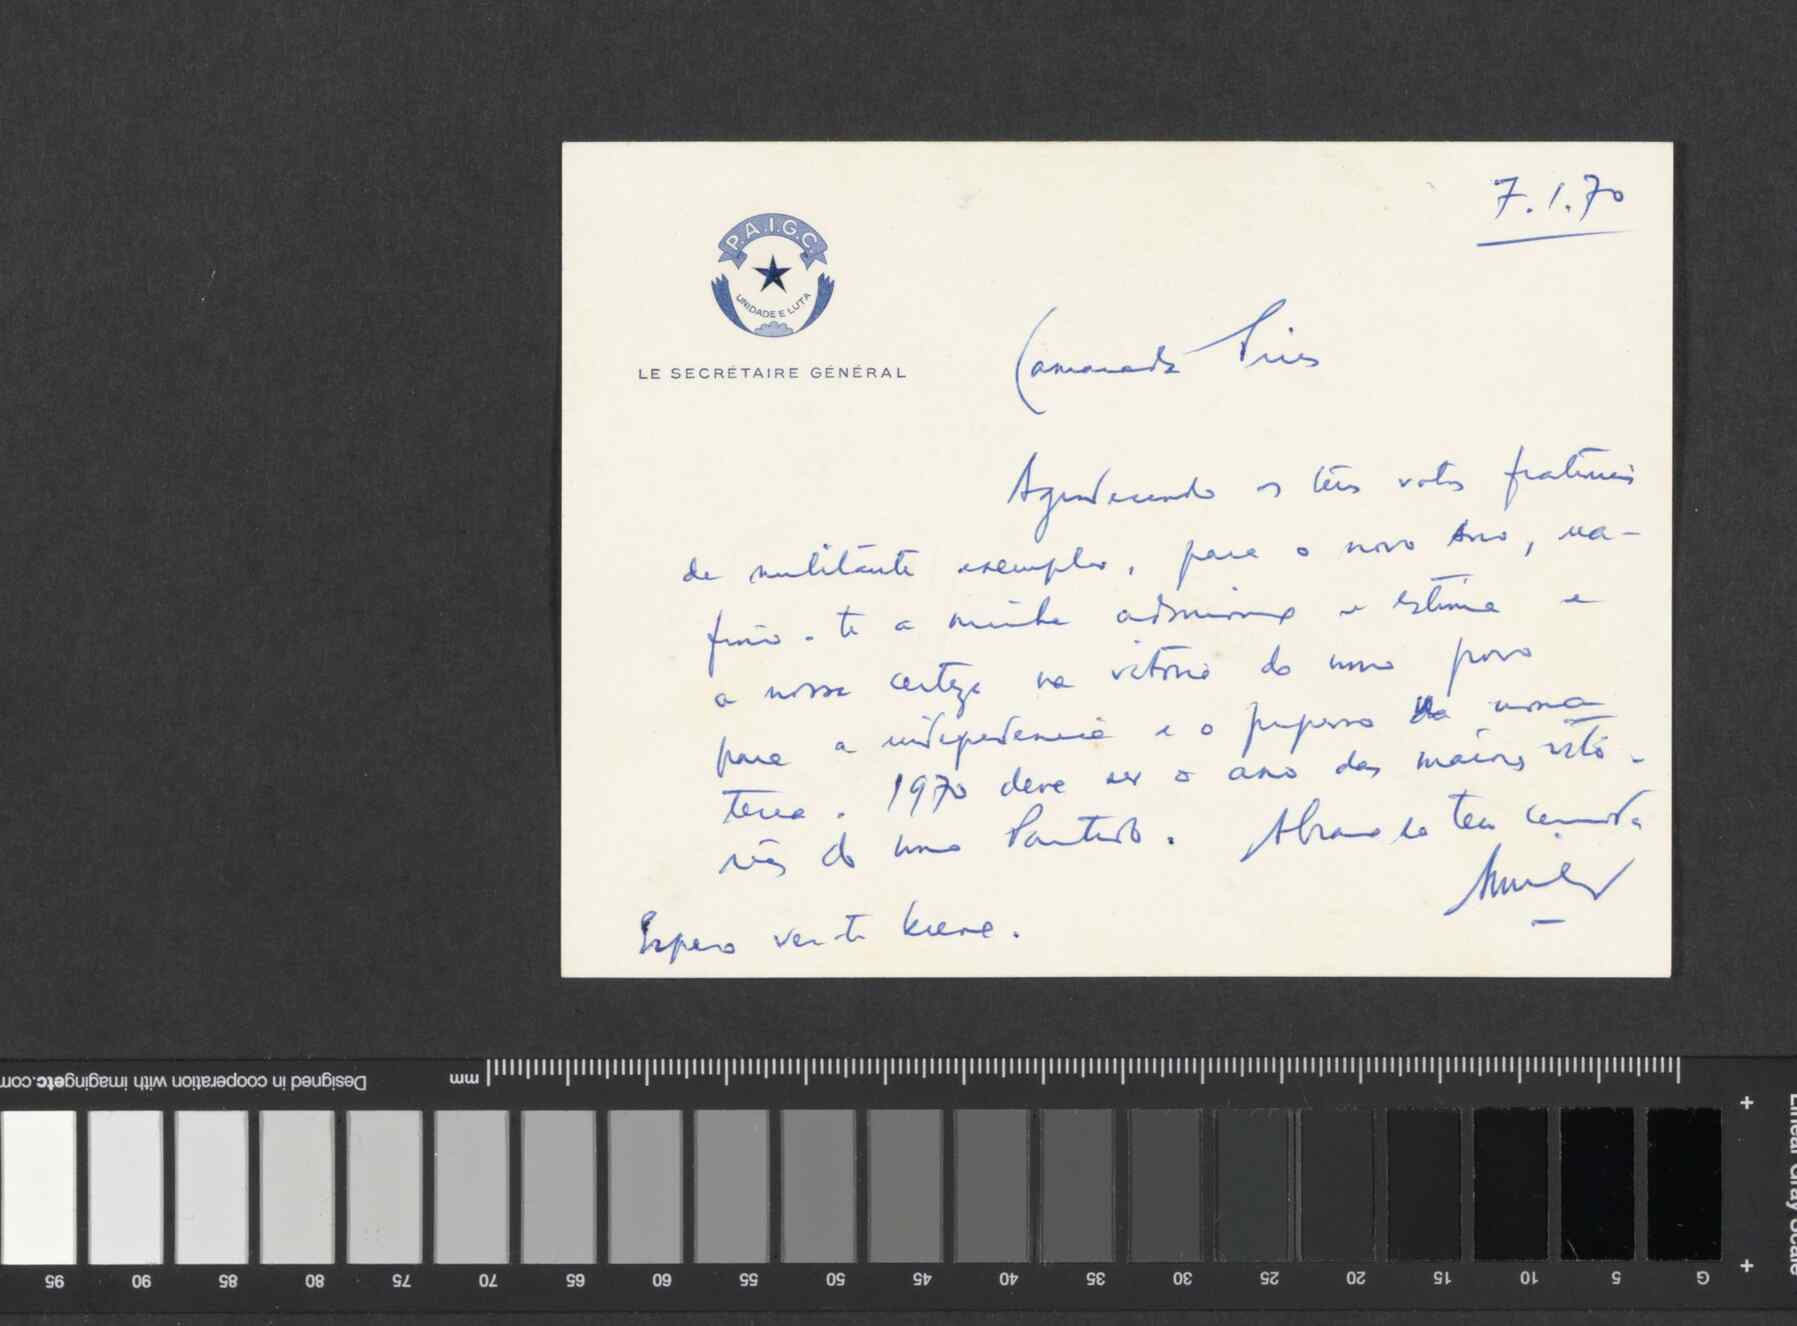 7.1.70
P.A.I.G.C.
UNIDADE E LUTA
LE SECRÉTAIRE GÉNÉRAL
Camarada Pires
Agradecendo os teus votos fraternais
de militante exemplar, para o novo Ano, rea-
firmo-te a minha admiração e estima e
a nossa certeza na vitória do nosso povo
para a independência e o progresso da nossa
terra. 1970 deve ser o ano das maiores vitó-
rias do nosso Partido. Abraça-te o teu camarada
Amilcar
Espero ver-te breve.
Designed in cooperation with imagingetc.com
mm
95 90 85 80 75 70 65 60 55 50 45 40 35 30 25 20 15 10 5 G
Linear Gray Scale